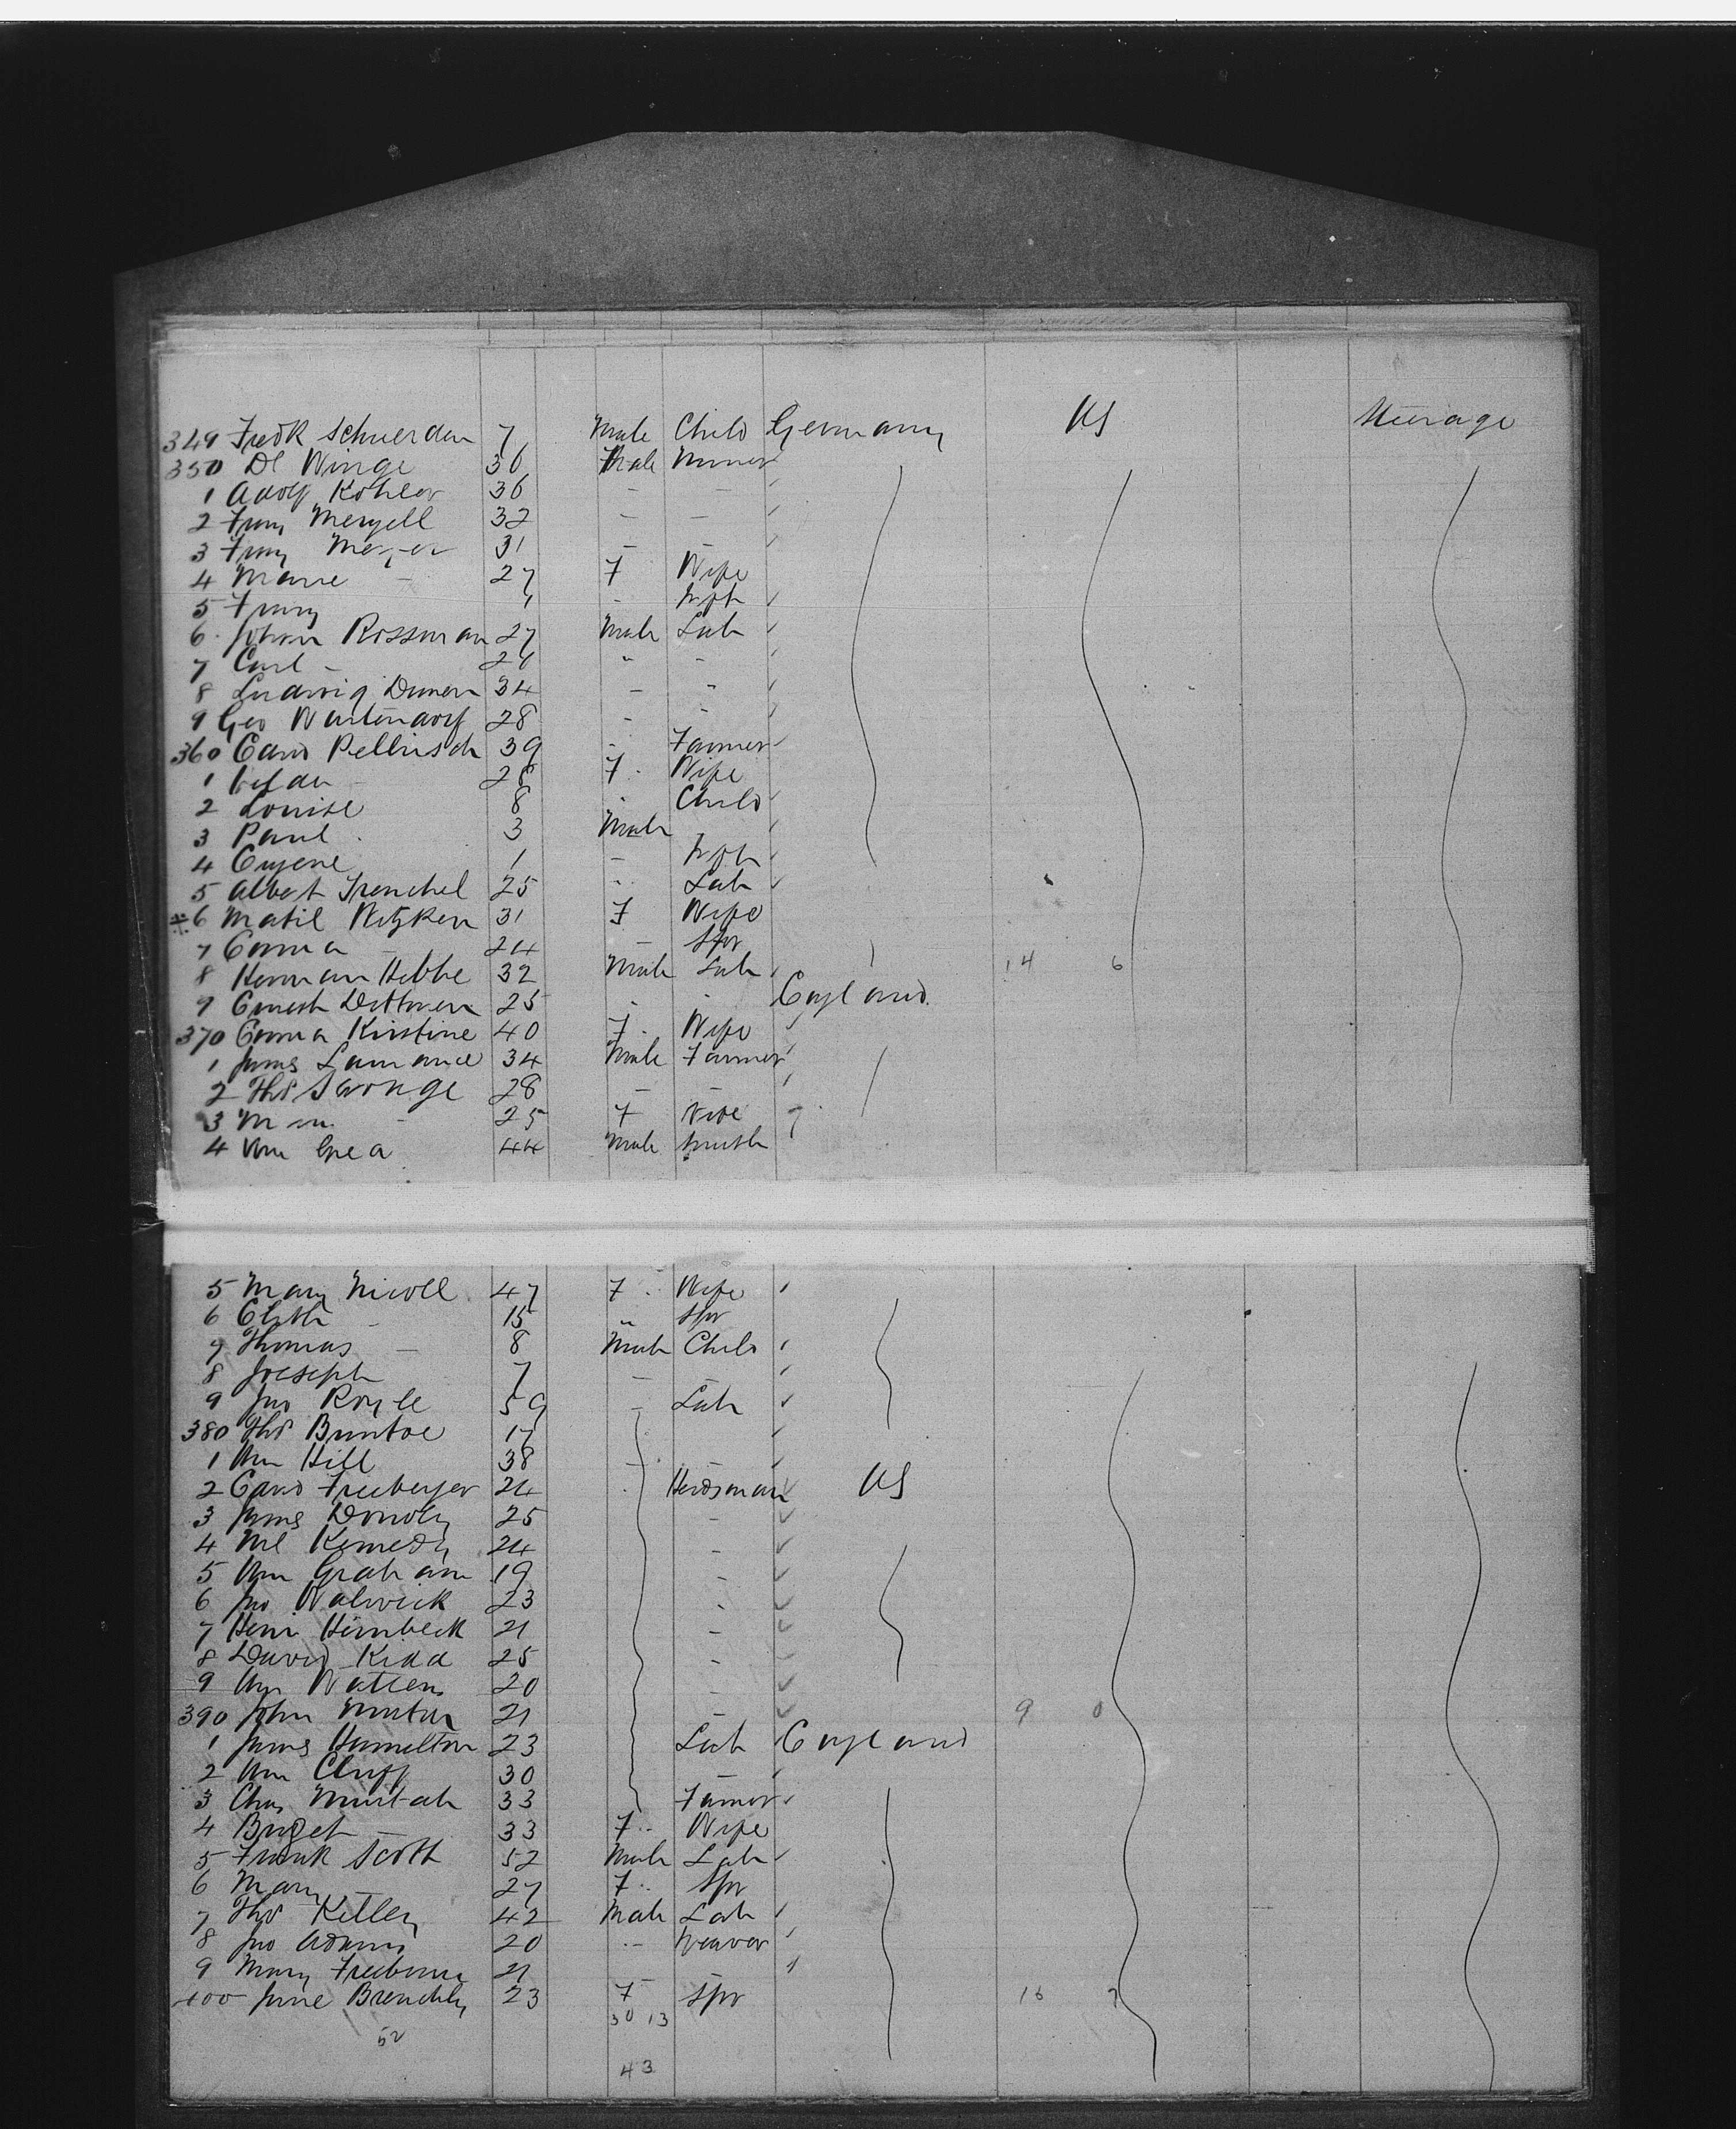 349 Fredk Schuerden 7 Male Child Germany US Steerage
350 Dl Winge 36 Male Miner
1 Adolf Kohler 36 - -
2 Franz 32 - -
3 Franz 31 - -
4 Marie - 27 F Wife
5 Franz 1 - Infth
6 Johann Rossman 27 Male Lab
7 Carl - 26 " -
8 Ludwig 34 - "
9 Geo Wartendorf 28 - -
360 39 - Farmer
1 28 F. Wife
2 Louise 8 . Child
3 Paul 3 Male
4 Eugene 1 - Infth
5 Albert Trenchel 25 " Lab
6 Matil Witzken 31 F Wife
7 Emma - 24 - Spr
8 Herman Hebbe 32 Male Lab 14 6
9 Ernest Dettmern 25 - - England
370 Emma Kirstine 40 F. Wife
1 James Laurance 34 Male Farmer
2 Thos Savage 28 - -
3 - 25 F Wife
4 Wm 44 Male Smith
5 Mary Nicoll 47 F. Wife
6 Elizth - 15 " Spr
7 Thomas - 8 Male Child
8 Joeseph 7 -
9 Jno Royle 59 - Lab
380 Thos Buntoe 17
1 Wm Hill 38 -
2 24 Herdsman US
3 James 25 -
4 Ml Kennedy 24 -
5 Wm Graham 19 -
6 Jno Walwick 23 -
7 Henri Hirnbeck 21 -
8 David Kidd 25 -
9 20 -
390 John 21 - 9 0
1 James Hamilton 23 Lab England
2 Wm Cluff 30 -
3 Chas Murtah 33 Farmer
4 Bridget - 33 F. Wife
5 Frank Scott 52 Male Lab
6 Mary - 27 F. Spr
7 Thos 42 Male Lab
8 Jno Adams 20 - Weaver
9 21 - -
400 Jane Brenchly 23 F Spr 16 7
30 13
52
43